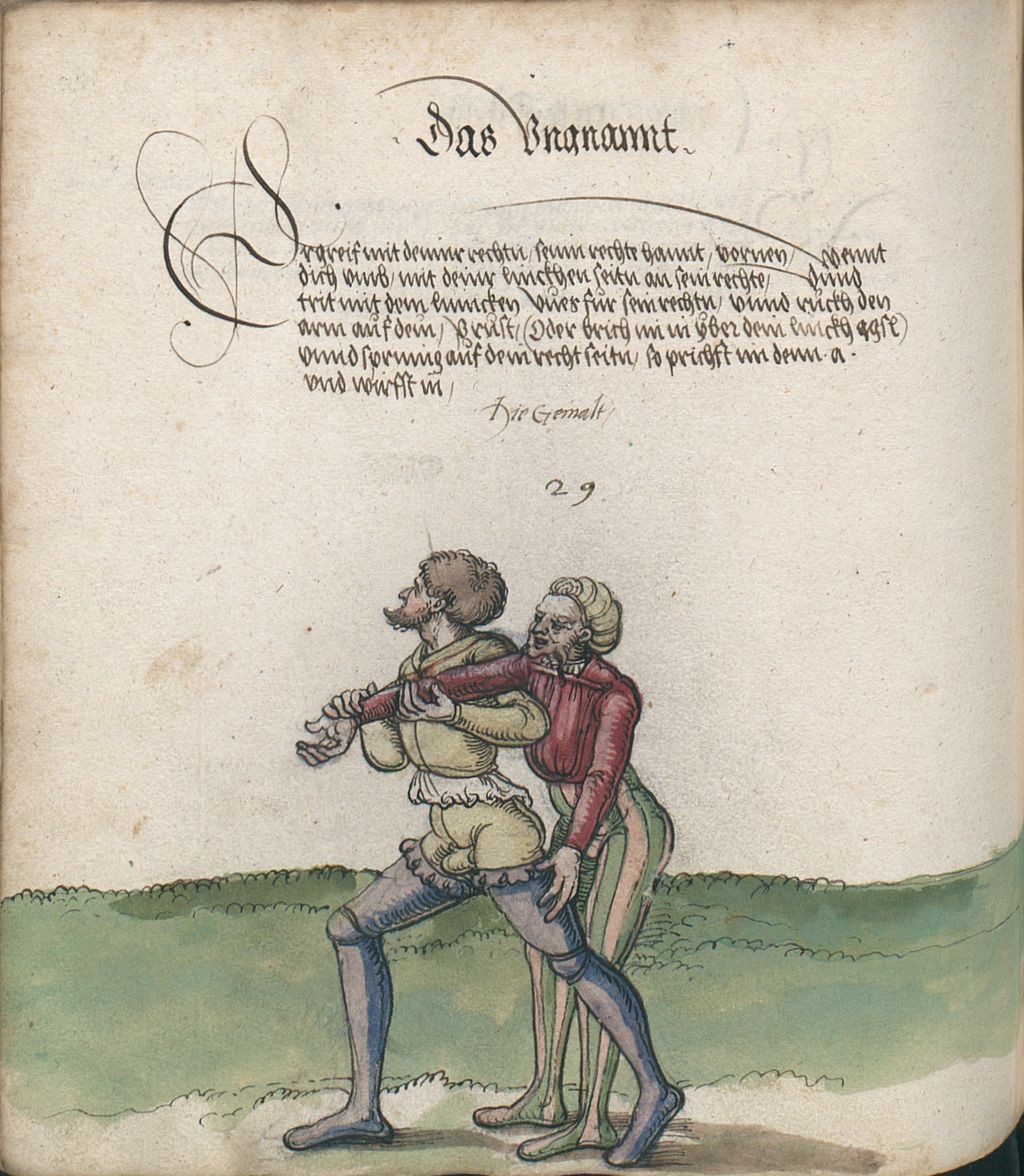 Das Vngnannt
Ergreif mit deinnr rechtn, seinn rechte hannt, vornen, Wennt
dich vmb, mit deinr linckhen seitn an sein rechte, Vnnd
trit mit dem linncken Vues für sein rechtn, vnnd rückh den
arm auf dein, Prust, (Oder brich im in yber dein linckh agsl)
vnnd sprinng auf dein recht seitn, so prichst im denn · a ·
vnd wirfst in,
Die Gemalt,
29